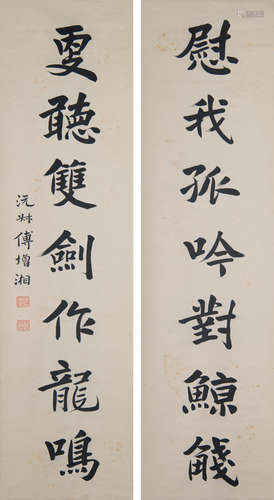 慰我孤吟對鯨觥
更聽雙劍作龍鳴
沅叔傅增湘